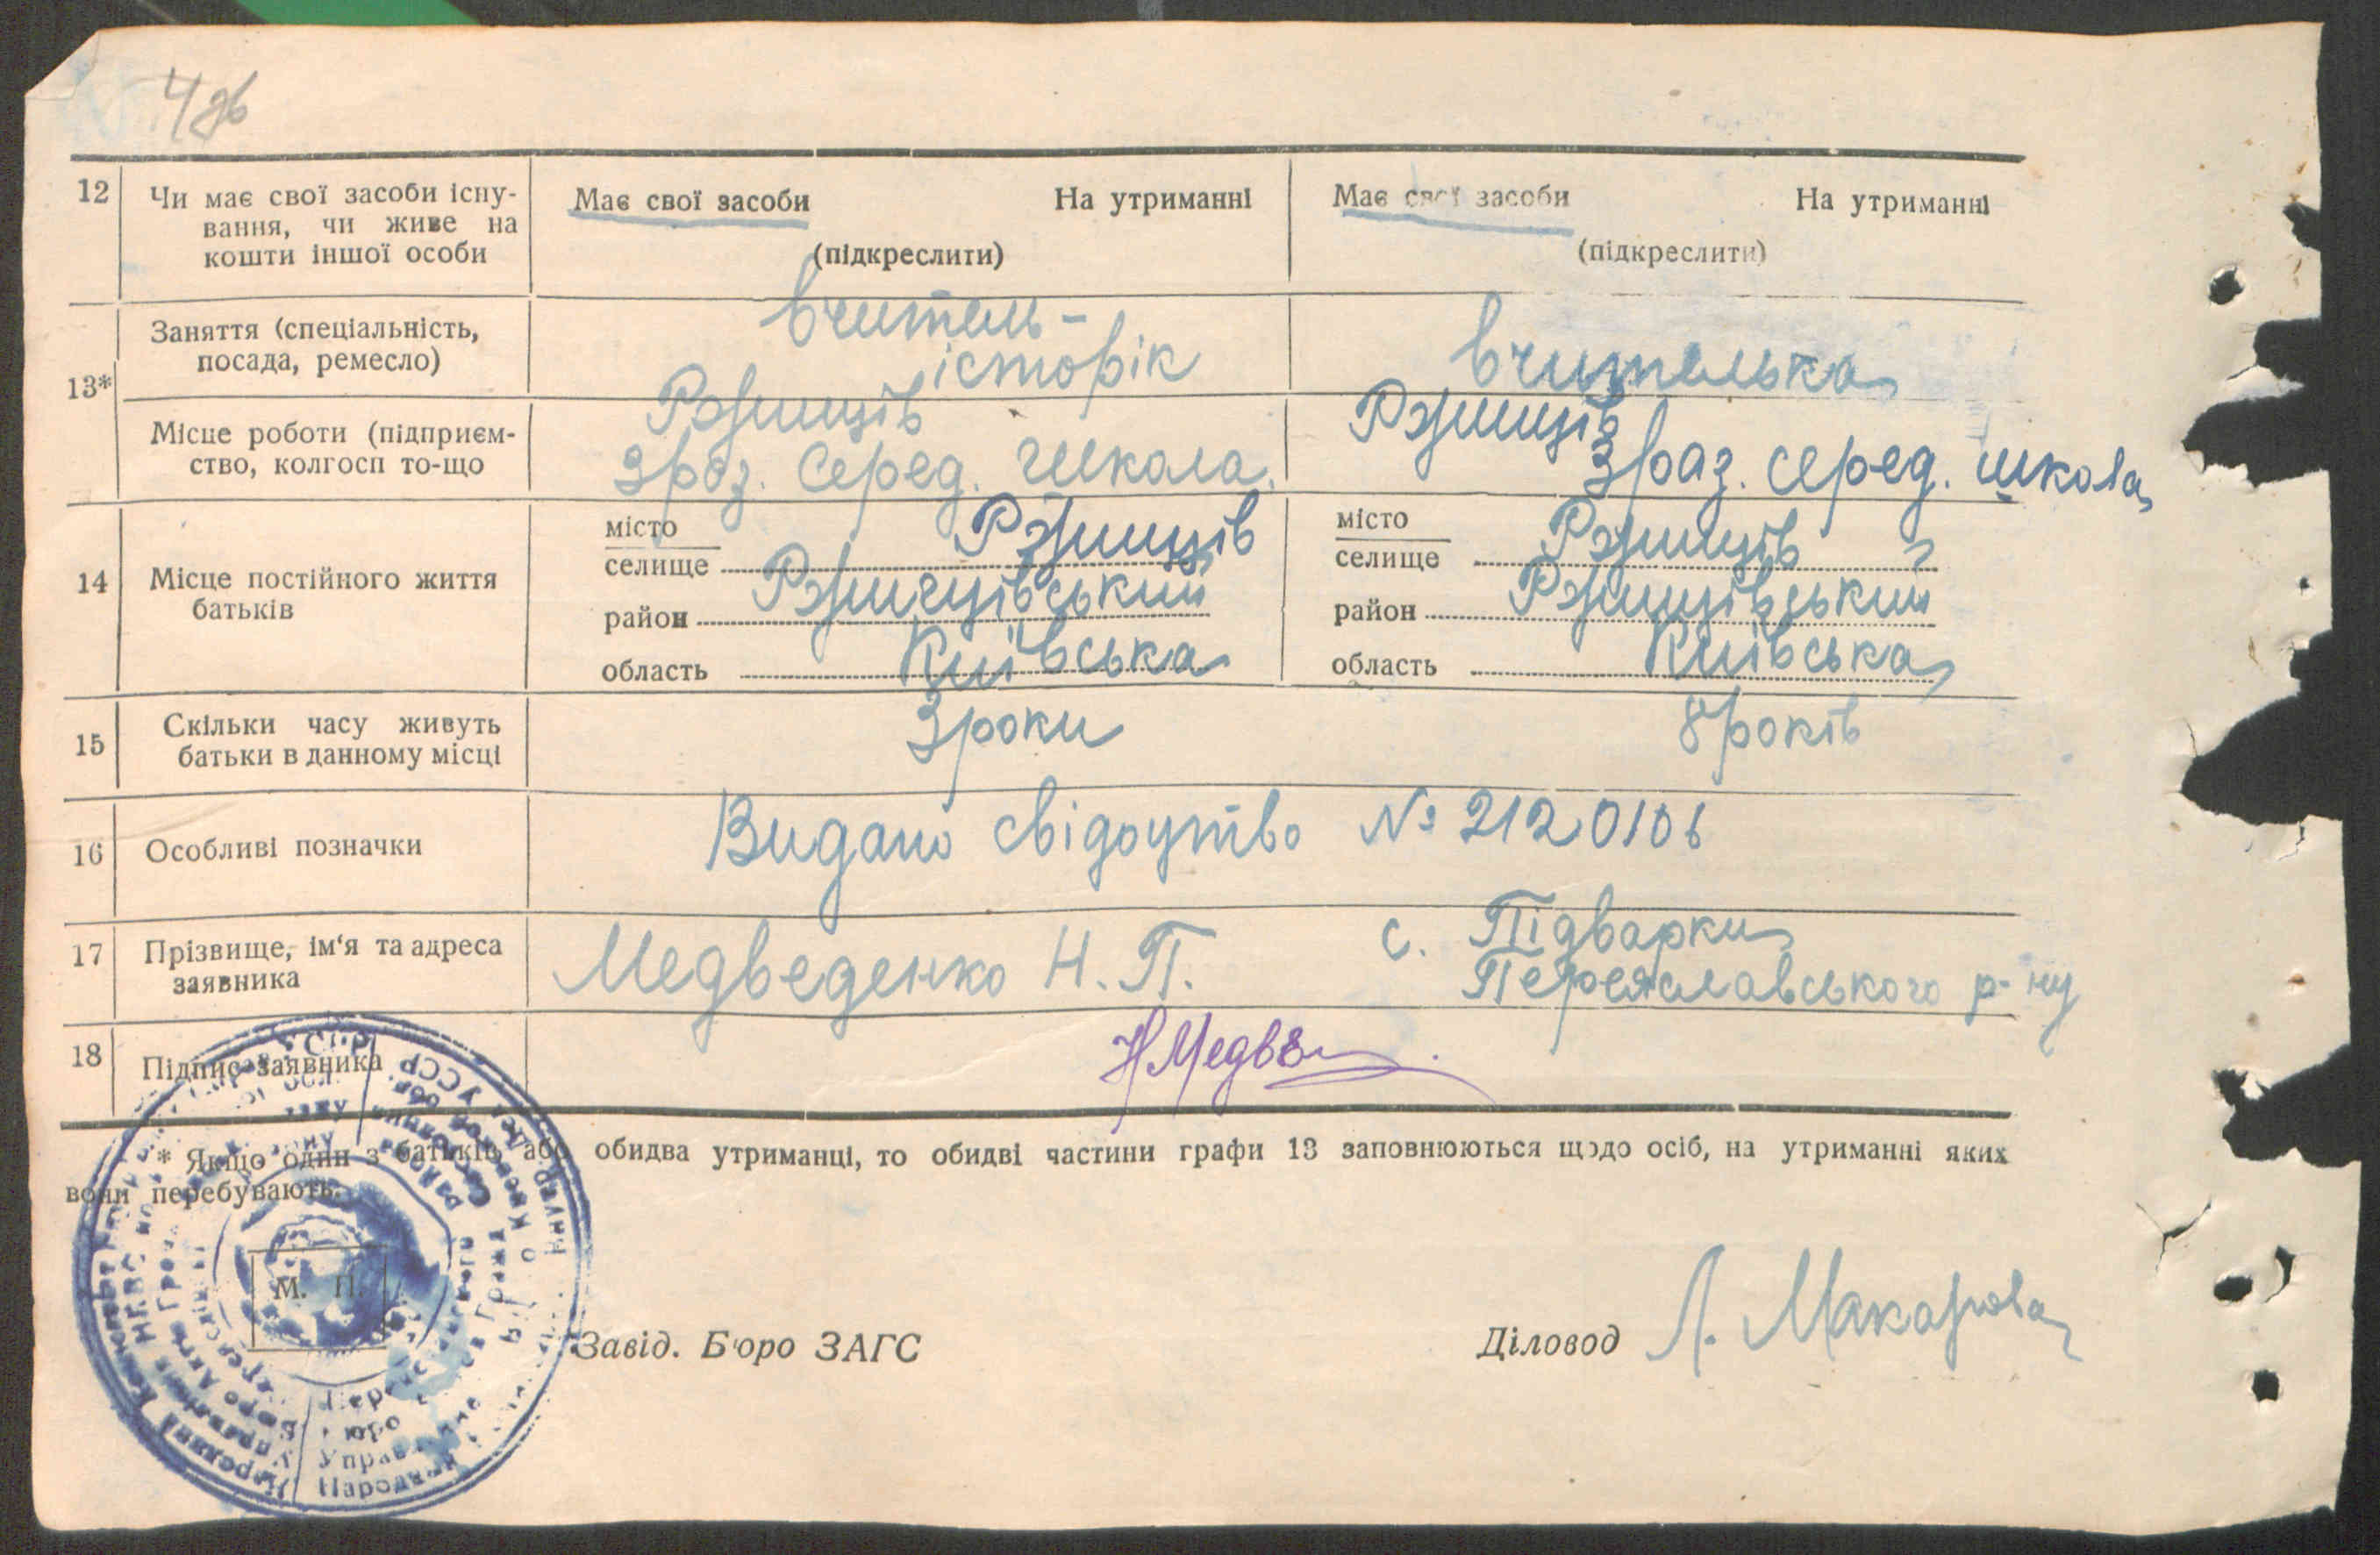 4 зв
12 Чи має свої засоби існу-
вання, чи живе на
кошти іншої особи
Має свої засоби На утриманні
(підкреслити)
Має свої засоби На утриманні
(підкреслити)
13*
Заняття (спеціальність,
посада, ремесло)
вчитель-
історік
вчителька
Місце роботи (підприєм-
ство, колгосп то-що
Ржищів
Зраз. серед. школа.
Ржищів
Зраз. серед. школа
14 Місце постійного життя
батьків
місто
селище Ржищів
район Ржищівський
область Київська
місто
селище Ржищів
район Ржищівський
область Київська
15 Скільки часу живуть
батьки в данному місці
3 роки
8 років
16 Особливі позначки
Видано свідоцтво № 2120106
17 Прізвище, ім'я та адреса
заявника
Медведенко Н. П.
с. Підварки
Переяславського р-ну
18 Підпис заявника
НМедве
* Якщо один з батьків або обидва утриманці, то обидві частини графи 13 заповнюються щодо осіб, на утриманні яких
вони перебувають.
М. П.
Завід. Б'юро ЗАГС
Діловод Л. Макарова